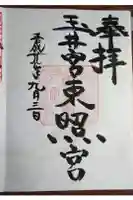 奉拝
玉井宮東照宮
平成廿八年九月三日